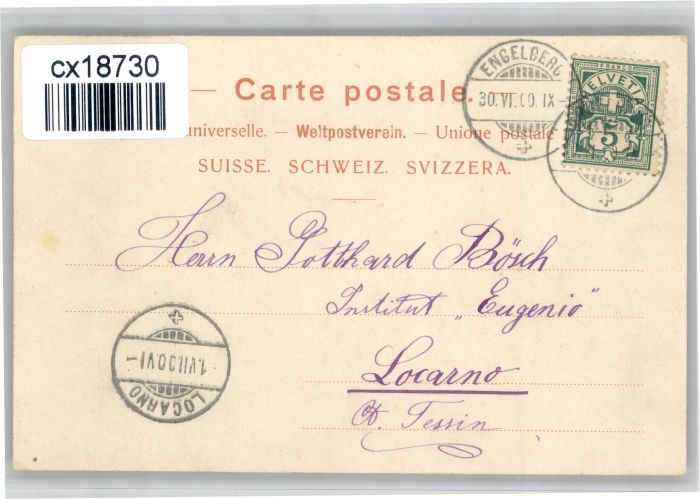 cx18730
Carte postale.
universelle. — Weltpostverein. — Unione postale
SUISSE. SCHWEIZ. SVIZZERA.
ENGELBERG
30.VI.00.IX-
FRANCO
HELVETIA
5
Herrn Gotthard Bösch
Institut „Eugenio"
Locarno
Ct. Tessin
1.VII.00.VI-
LOCARNO